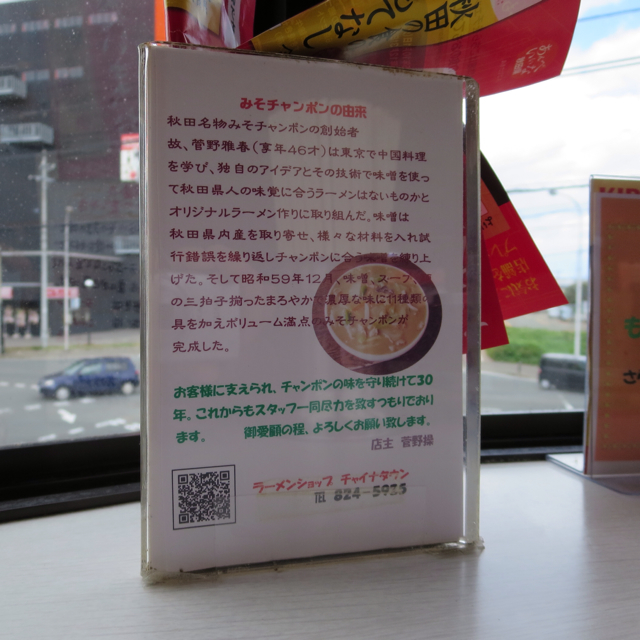 みそチャンポンの由来
秋田名物みそチャンポンの創始者
故、菅野雅春(享年46才)は東京で中国料理
を学び、独自のアイデアとその技術で味噌を使っ
て秋田県人の味覚に合うラーメンはないものかと
オリジナルラーメン作りに取り組んだ。味噌は
秋田県内産を取り寄せ、様々な材料を入れ試
行錯誤を繰り返しチャンポンに合う 練り上
げた。そして昭和59年12月、味噌、スープ、
の三拍子揃ったまろやかで濃厚な味に11種類の
具を加えボリューム満点のみそチャンポンが
完成した。
お客様に支えられ、チャンポンの味を守り続けて30
年。これからもスタッフ一同尽力を致すつもりであり
ます。 御愛顧の程、よろしくお願い致します。
店主 菅野操
ラーメンショップ チャイナタウン
TEL 824-5935
秋田の